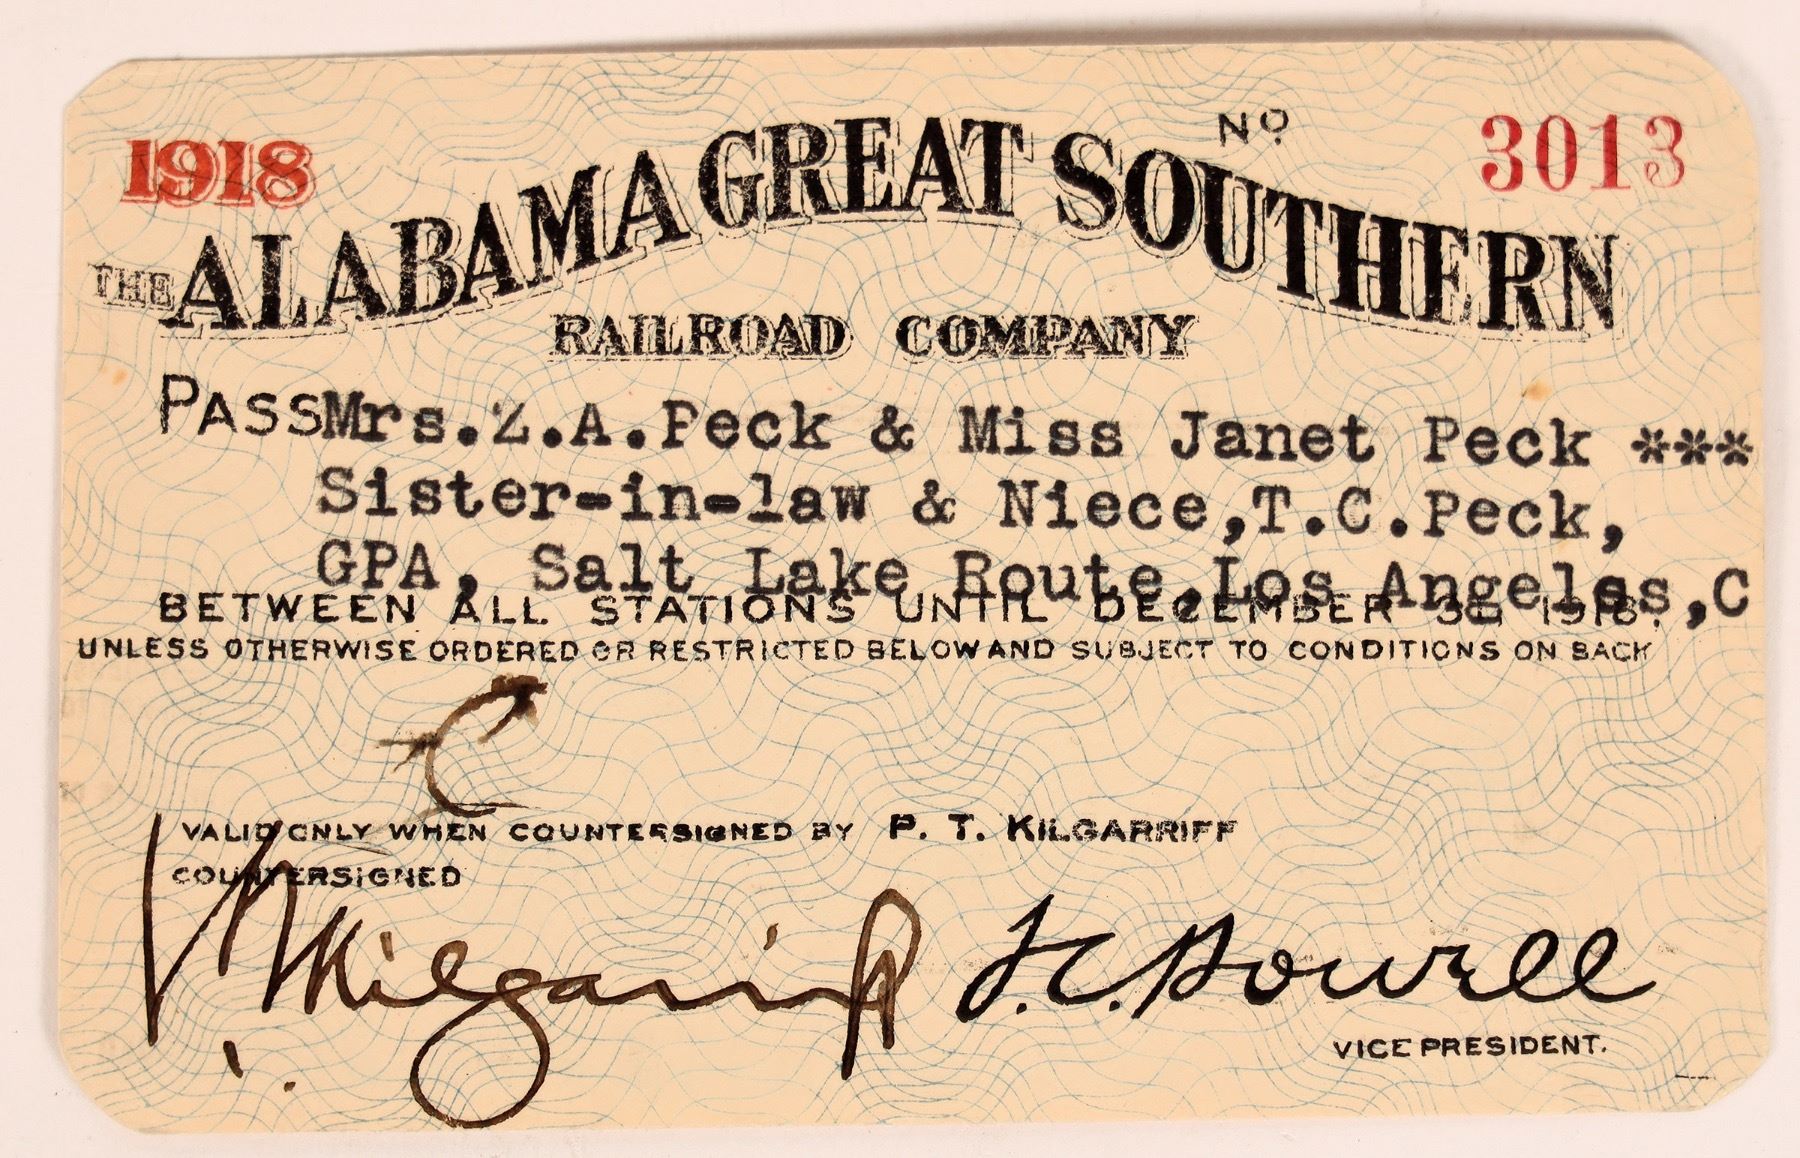 1918
Nº 3013
THE ALABAMA GREAT SOUTHERN
RAILROAD COMPANY
PASS Mrs. Z.A.Peck & Miss Janet Peck ***
Sister-in-law & Niece,T.C.Peck,
GPA, Salt Lake Route,Los Angeles,C
BETWEEN ALL STATIONS UNTIL DECEMBER 31 1918.
UNLESS OTHERWISE ORDERED OR RESTRICTED BELOW AND SUBJECT TO CONDITIONS ON BACK
C
VALID ONLY WHEN COUNTERSIGNED BY P. T. KILGARRIFF
COUNTERSIGNED
P. T. Kilgarriff
VICE PRESIDENT.